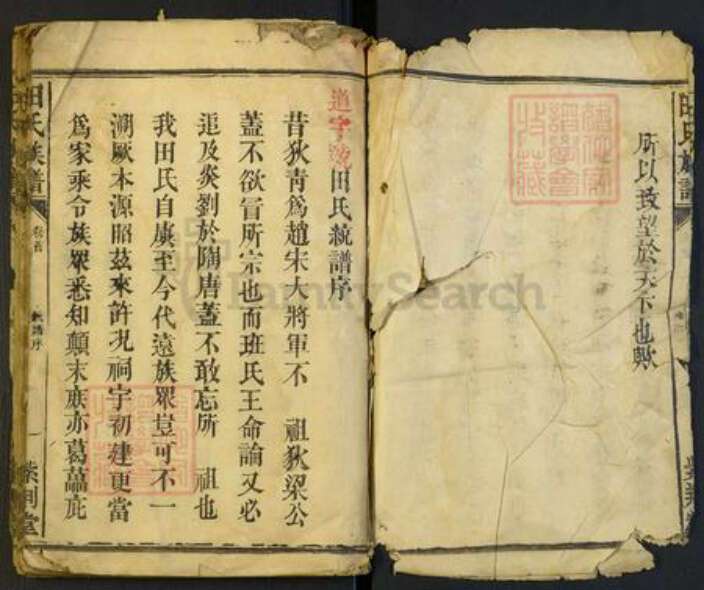 田氏族譜
所以致望於天下也歟
道字號
田氏統譜序
昔狄靑爲趙宋大將軍不 祖狄梁公
蓋不欲冒所宗也而班氏王命論又必
追及炎劉於隋唐蓋不敢忘所 祖也
我田氏自虞至今代遠族眾豈可不一
溯厥本源昭茲來許況祠宇初建更當
爲家乘令族眾悉知顛末庶亦葛藟庇
田氏族譜
卷首
統譜序
一
紫荆堂
FamilySearch